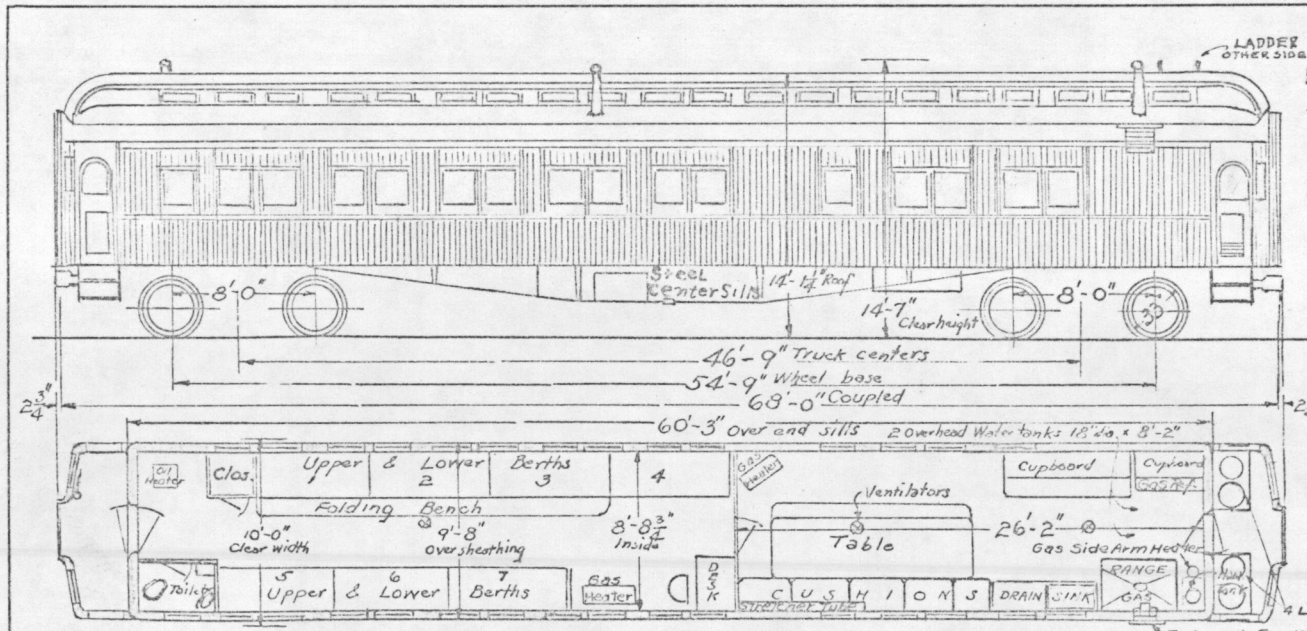 LADDER
OTHER SIDE
Steel
Center Sills
14'-1¼" Roof
8'-0"
8'-0"
33"
14'-7"
Clear height
46'-9" Truck centers
54'-9" Wheel base
2¾"
68'-0" Coupled
2
60'-3" Over end sills
2 Overhead Water tanks 18" dia. x 8'-2"
Oil
Heater
Clos.
Upper & Lower Berths
2 3 4
Gas
Heater
Cupboard
Cupboard
Gas Ref.
Folding Bench
Ventilators
10'-0"
Clear width
9'-8"
Over sheathing
8'-8¾"
Inside
Table
26'-2"
Gas Side Arm Heater
Toilet
5 6 7
Upper & Lower Berths
Gas
Heater
DESK
CUSHIONS
Stretcher Tube
DRAIN
SINK
RANGE
GAS
4 L